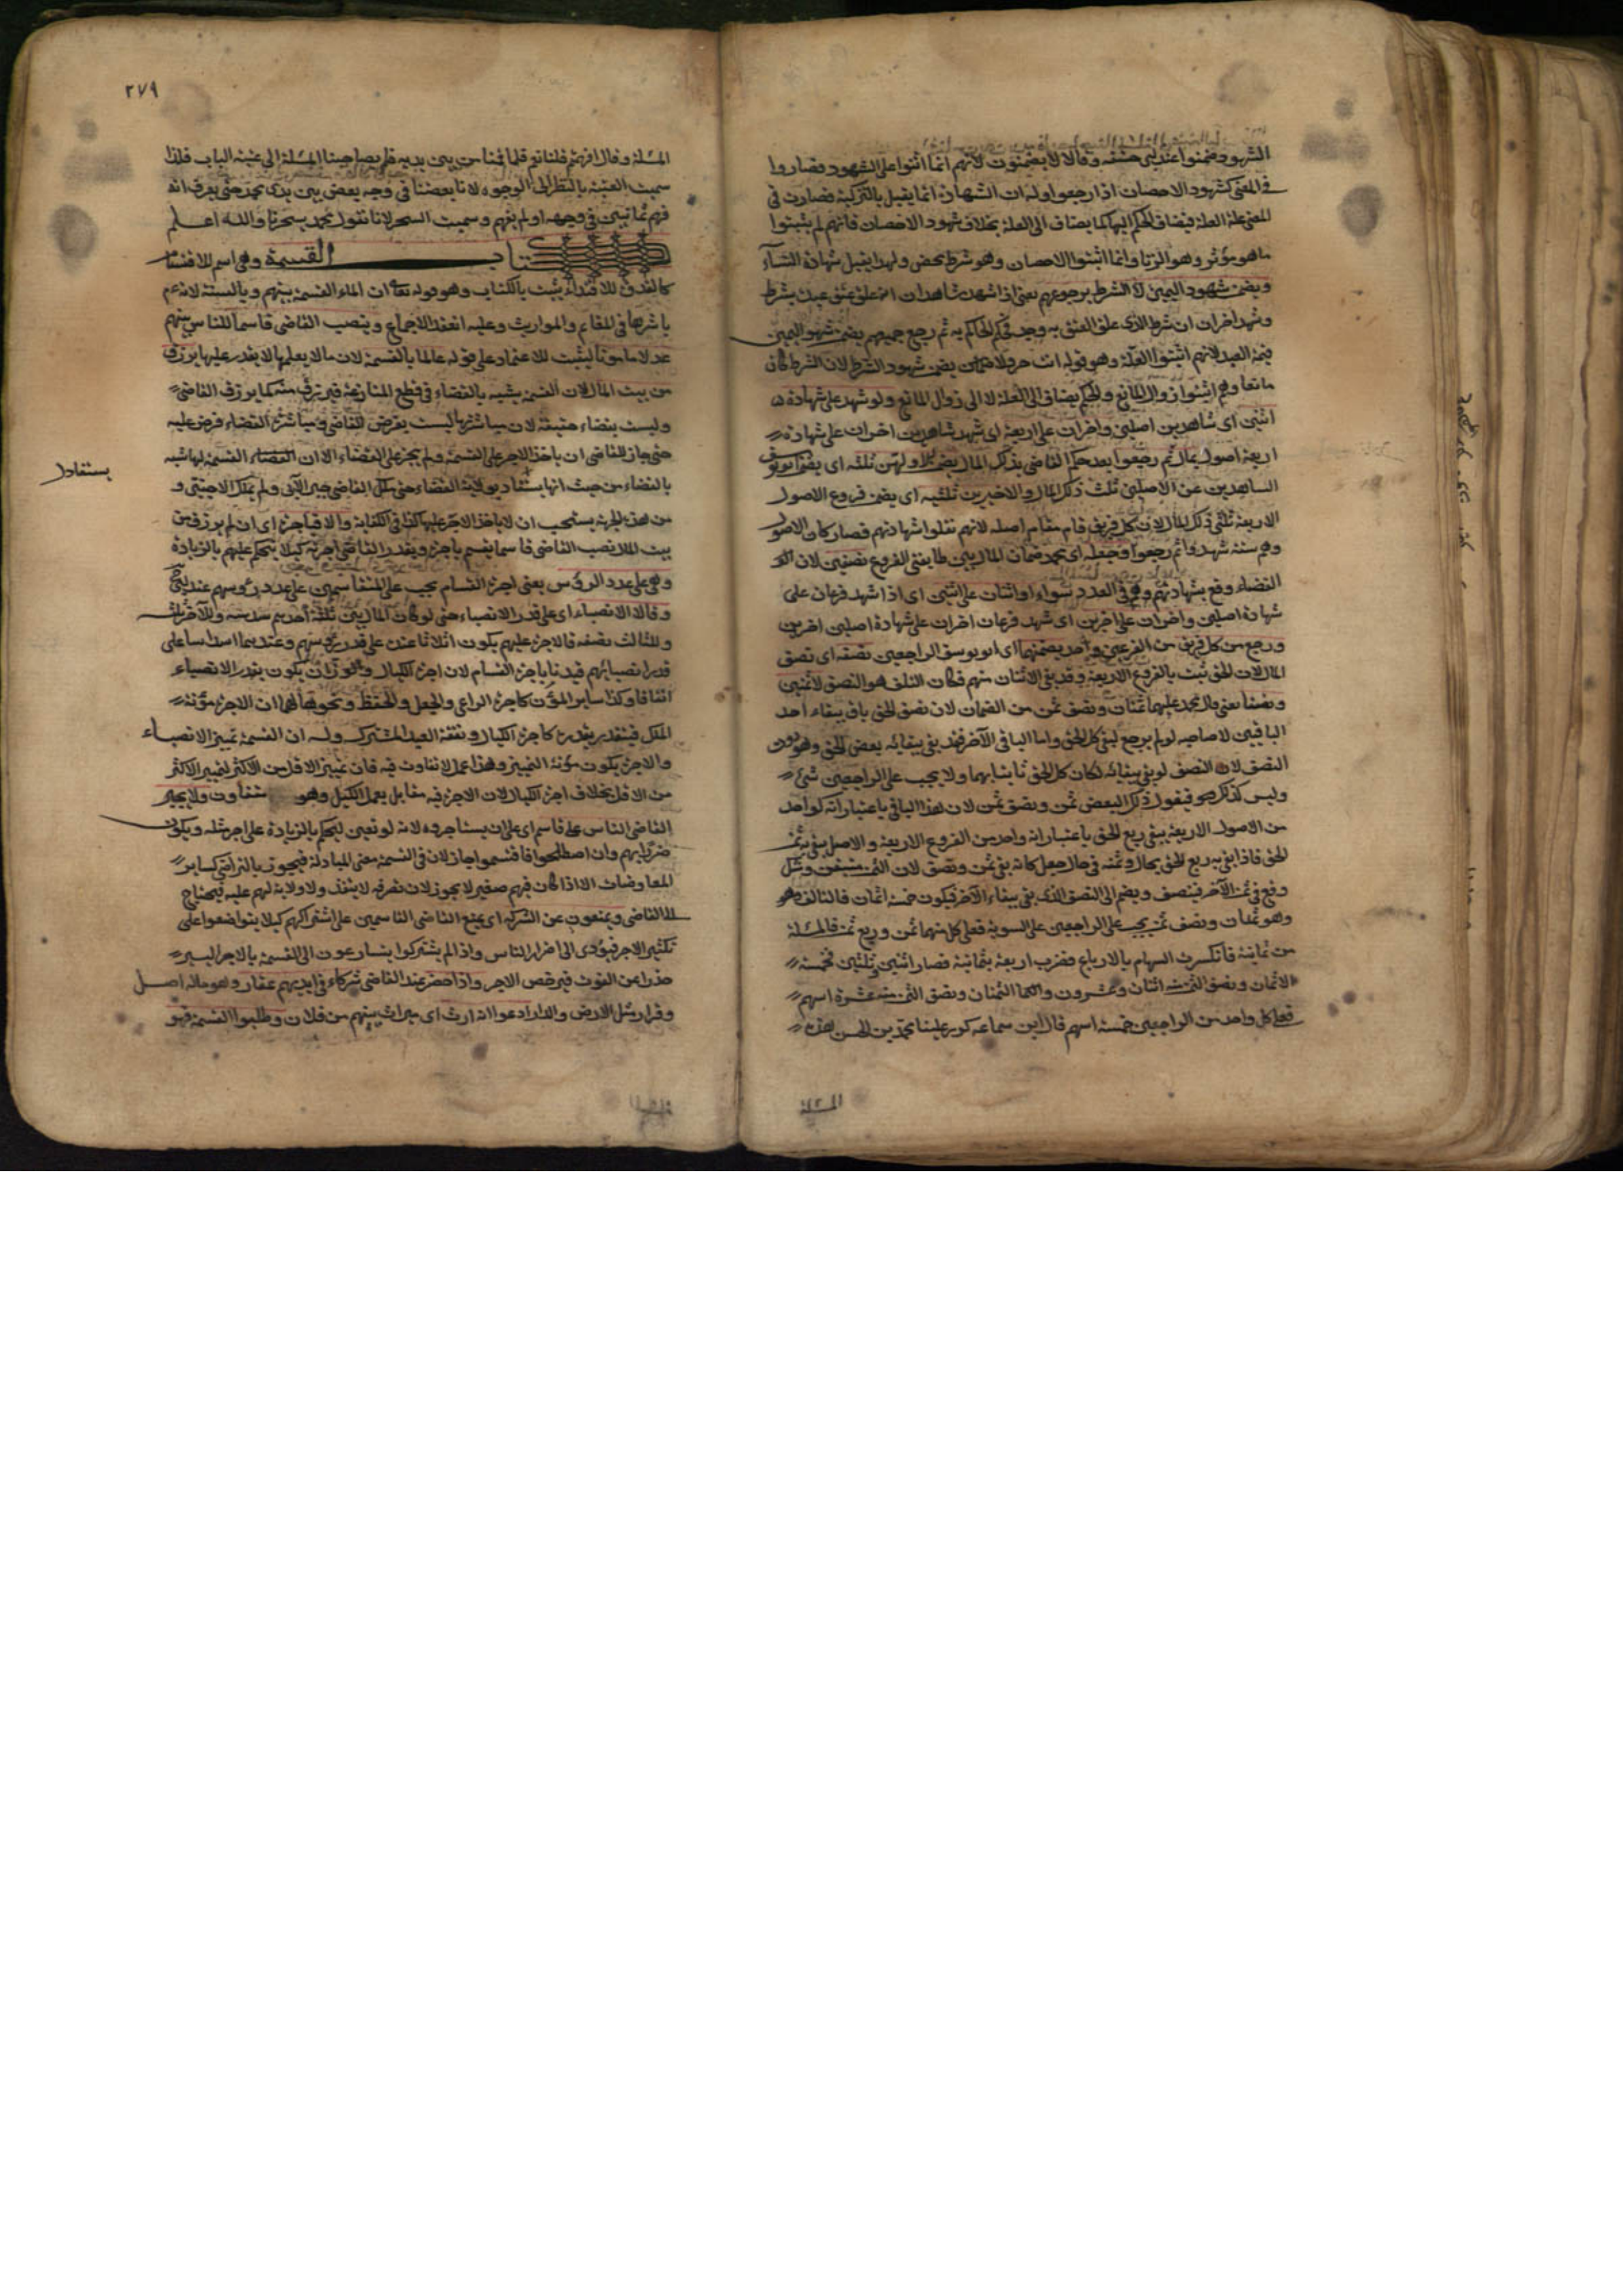 الشهود ضمنوا عند ابي حنيفة وقالا لا يضمنون لانهم انما اثنوا على الشهود فصاروا
في المعنى كشهود الاحصان اذا رجعوا وله ان الشهادة انما يقبل بالتزكية فصارت في
المعنى علة العلة فيضاف الحكم اليها كما يضاف الى العلة بخلاف شهود الاحصان فانهم لم يثبتوا
ما هو مؤثر وهو الزنا وانما اثبتوا الاحصان وهو شرط محض ولهذا يقبل شهادة النساء
ويضمن شهود اليمين لا الشرط برجوعهم يعني اذا شهد شاهدان انه علق عتق عبده بشرط
وشهد اخران ان شرط الذي علق العتق به وجد فحكم الحاكم به ثم رجع جميعهم يضمن شهود اليمين
قيمة العبد لانهم اثبتوا العلة وهو قوله انت حر ولا يضمن شهود الشرط لان الشرط كان
مانعا وهم اثبتوا زوال المانع والحكم يضاف الى العلة لا الى زوال المانع ولو شهد على شهادة
اثنين اي شاهدين اصلين واخران على اربعة اي شهد شاهدين اخران على شهادة
اربعة اصول بمال ثم رجعوا بعد حكم القاضي بذلك المال يضمن الاولين ثلثه اي يضمن ابو يوسف
الشاهدين عن الاصلين ثلث ذلك المال والاخيرين ثلثيه اي يضمن فروع الاصول
الاربعة ثلثي ذلك المال لان كل فريق قام مقام اصله لانهم نقلوا شهادتهم فصار كان الاصول
وهم ستة شهدوا ثم رجعوا وجعله اي محمد ضمان المال بين طايفتي الفروع نصفين لان
القضاء وقع بشهادتهم وهم في العدد سواء او اثنان على اثنين اي اذا شهد فرعان على
شهادة اصلين واخران على اخرين اي شهد فرعان اخران على شهادة اصلين اخرين
ورجع من كل فريق من الفرعين واحد يضمنهما اي ابو يوسف الراجعين نصفه اي نصف
المال لان الحق ثبت بالفروع الاربعة وقد بقي الاثنان منهم فكان التلف هو النصف لا ثمنين
ونصفا يعني قال محمد عليهما ثمنان ونصف ثمن من الضمان لان نصف الحق باق ببقاء احد
الباقيين لا صاحبه لو لم يرجع لبقي كل الحق واما الباقي الآخر فقد بقي ببقائه بعض الحق وهو دون
النصف لان النصف لو بقي ببقائه لكان كل الحق ثابتا بهما ولا يجب على الراجعين شئ
وليس كذلك فيقول ذلك البعض ثمن ونصف ثمن لان هذا الباقي باعتبار انه لواحد
من الاصول الاربعة يبقى ربع الحق باعتبار انه واحد من الفروع الاربعة والاصل يبقى ثمن
الحق فاذا بقي به ربع الحق بحال وثمنه في حال جعل كانه بقي ثمن ونصف لان الثمن متيقن وشك
وقع في ثمن الآخر فينصف ويضم الى النصف الذي بقي ببقاء الآخر فيكون خمسة اثمان فالتالف
وهو ثمنان ونصف ثمن يجب على الراجعين على السوية فعلى كل منهما ثمن وربع ثمن فالمسئلة
من ثمانية فانكسرت السهام بالارباع فضرب اربعة بثمانية فصار اثنين وثلثين فخمسة
الاثمان ونصف الثمن اثنان وعشرون واما الثمنان ونصف الثمن عشرة اسهم
فعلى كل واحد من الراجعين خمسة اسهم قال ابن سماعه كرر علينا محمد بن الحسن هذه
المسئلة
٢٧٩
المسئلة وقال افهمتم فلنا نعم فلما قمنا من بين يديه فلم يصاحبنا المسئلة الى عتبة الباب فلذا
سميت العتبة بالنظر الى الوجوه لانا بعضنا في وجه بعض بين يدي محمد حتى يعرف انه
فهم فما تبين في وجهه او لم يفهم وسميت السحر لانا نقول محمد يسحرنا والله اعلم
كتاب القسمة وهي اسم للاقتسام
كالقدوة للاقتداء يثبت بالكتاب وهو قوله تعالى ان الماء القسمة بينهم وبالسنة لانه عم
باشرها في المغانم والمواريث وعليه انعقد الاجماع وينصب القاضي قاسما للناس بينهم
عدلا مامونا ليثبت للاعتماد على قوله عالما بالقسمة لان ما لا يعلمها لا يقدر عليها يرزق
من بيت المال لان القسمة يشبه بالقضاء في قطع المنازعة فيرزق منه كما يرزق القاضي
وليست بقضاء حقيقة لان مباشرتها ليست بفرض للقاضي ومباشرة القضاء فرض عليه
حتى جاز للقاضي ان ياخذ الاجر على القسمة ولم يجز على القضاء الا ان القسمة لها شبه
بالقضاء من حيث انها يستفاد بولاية القضاء حتى ملك القاضي جبر الآبي ولم يملك الاجنبي و
يستفاد
من هذه الجهة يستحب ان لا ياخذ الاجر عليها كذا في الكفاية والا فباجرة اي ان لم يرزق من
بيت المال نصب القاضي قاسما يقسم باجرة ويقدر القاضي اجرته كيلا يتحكم عليهم بالزيادة
وهي على عدد الرؤس يعني اجرة القسام يجب على المتقاسمين على عدد رؤسهم عند ابي ح
وقالا الانصباء اي على قدر الانصباء حتى لو كان المال بين ثلثة احدهم سدسه وللآخر ثلثه
وللثالث نصفه فالاجرة عليهم يكون اثلاثا عنده على قدر رؤسهم وعندهما اسداسا على
قدر انصبائهم قيدنا باجرة القسام لان اجرة الكيال والوزان يكون بقدر الانصباء
اتفاقا وكذا ساير المؤن كاجرة الراعي والحمل والحفظ ونحوها لهما ان الاجرة مؤنة
الملك فيتقدر بقدره كاجرة الكيال ونفقة العبد المشترك وله ان القسمة تمييز الانصباء
والاجرة يكون مؤنة التمييز وهذا عمل لا تفاوت فيه فان تمييز الاقل من الاكثر لتمييز الاكثر
من الاقل بخلاف اجرة الكيال لان الاجرة فيه مقابل بعمل الكيل وهو متفاوت ولا يجبر
القاضي الناس على قاسم اي على ان يستاجروه لانه لو تعين ليحكم بالزيادة على اجر مثله ويكون
ضررا بهم وان اصطلحوا فاقتسموا جاز لان في القسمة معنى المبادلة فيجوز بالتراضي كساير
المعاوضات الا اذا كان فيهم صغير لا يجوز لان تصرفه لا ينفذ ولا ولاية لهم عليه فيحتاج
الى القاضي ويمنعون عن الشركة اي يمنع القاضي القاسمين على اشتراكهم كيلا يتواضعوا على
تكثير الاجر فيؤدي الى اضرار الناس واذا لم يشتركوا يتسارعون الى القسمة بالاجر اليسير
حذرا عن الفوت فيرخص الاجر واذا حضر عند القاضي شركاء في ايديهم عقار وهو ماله اصل
وقرار مثل الارض والدار ادعوا انه ارث اي ميراث بينهم من فلان وطلبوا القسمة فهو